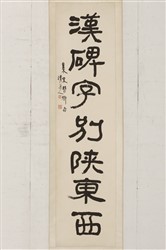 漢碑字別陝東西